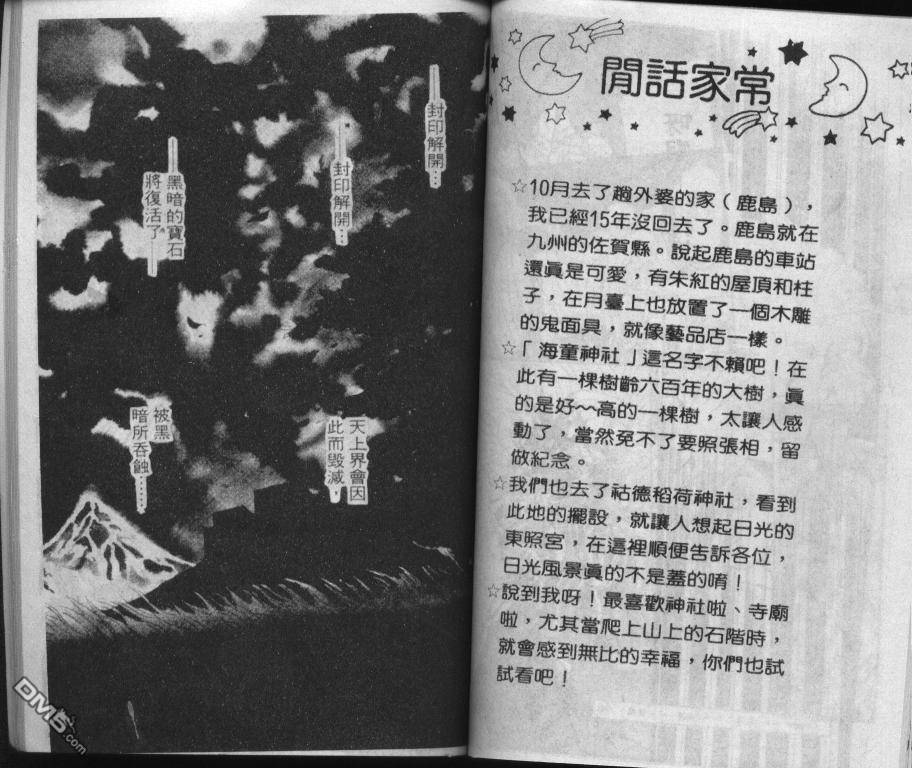 封印解開…
封印解開…
黑暗的寶石
將復活了
天上界會因
此而毀滅，
被黑
暗所吞蝕……
閒話家常
☆10月去了趟外婆的家（鹿島），
我已經15年沒回去了。鹿島就在
九州的佐賀縣。說起鹿島的車站
還眞是可愛，有朱紅的屋頂和柱
子，在月臺上也放置了一個木雕
的鬼面具，就像藝品店一樣。
☆「海童神社」這名字不賴吧！在
此有一棵樹齡六百年的大樹，眞
的是好～高的一棵樹，太讓人感
動了，當然免不了要照張相，留
做紀念。
☆我們也去了祜德稻荷神社，看到
此地的擺設，就讓人想起日光的
東照宮，在這裡順便告訴各位，
日光風景眞的不是蓋的唷！
☆說到我呀！最喜歡神社啦、寺廟
啦，尤其當爬上山上的石階時，
就會感到無比的幸福，你們也試
試看吧！
DM5.com